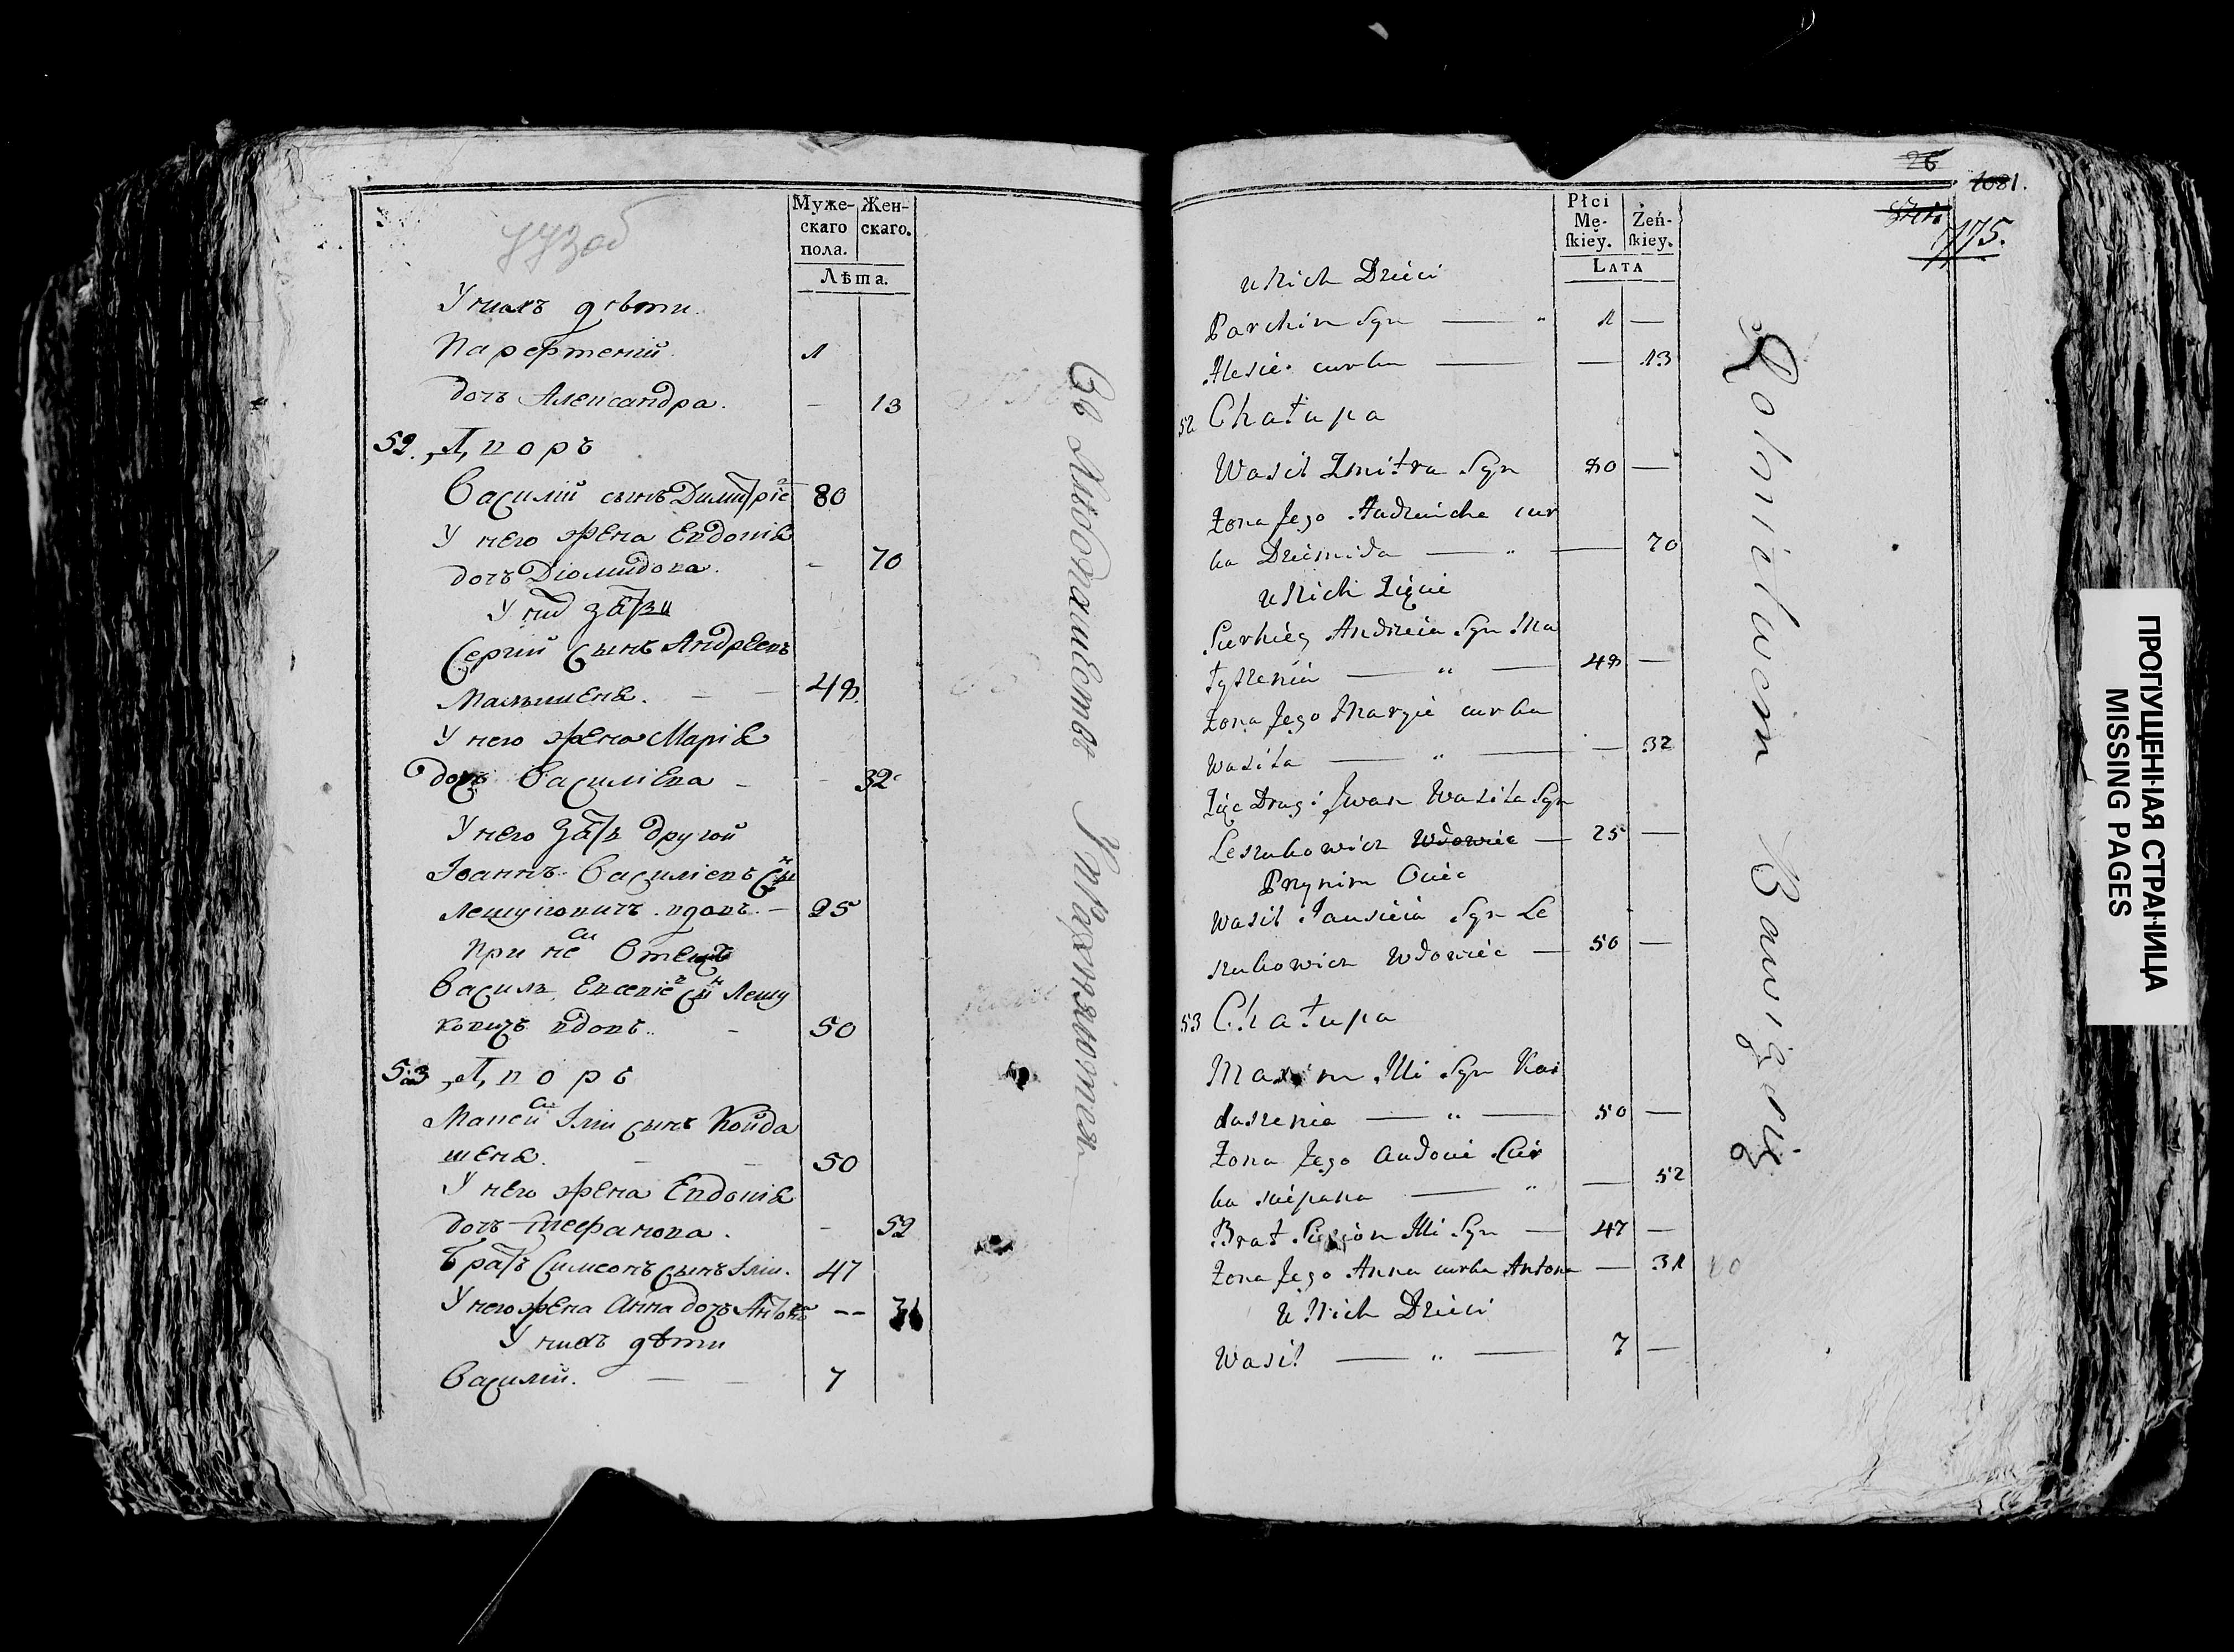 Муже-
скаго
пола.
Жен-
скаго.
Лѣта.
У нихъ дѣти.
Парфтеній. 1
дочь Александра. — 13
52. Дворъ
Василій сынъ Димитріе 80
У него жена Евдокія
дочь Діомидова. - 70
У них зятзи
Сергій сынъ Андреевъ
Малышеня. — 48.
У него жена Марія
дочь Василіева - 32
У него зять другой
Іоаннъ Василіевъ сын
Лешукевичъ вдовъ. — 25
При немъ Отецъ
Василь Евсевіе сын Лешу
ковичъ вдовъ. - 50
53 Дворъ
Іліи сынъ Койда
шеня. — 50
У него жена Евдокія
дочь Стефанова. - 52
Братъ Симеонъ сынъ Іліи. 47
У него жена Анна дочь Антона -- 31
У нихъ дѣти
Василій. — 7
Въ Любопашества Упражняются
26
1081.
175.
Płci
Mę-
skiey.
Żeń-
skiey.
LATA
u Nich Dzieci
Parchin Syn — 1 —
Alesie curka — — 13
52 Chałupa
Wasil Zmitra Syn 80 —
Żona Jego Audzieicha cur
ka Dziemida — — 70
u Nich Zięcie
Sierhiey Andreia Syn Ma
łyszenia — 48 —
Żona Jego Maryia curka
Wasila — — 32
Zięc Drugi Jwan Wasila Syn
Leszukowicz Wdowiec — 25 —
Przynim Ociec
Wasil Jausieia Syn Le
szukowicz Wdowiec — 50 —
53 Chałupa
Maxim Illi Syn Kai
daszenia — 50 —
Żona Jego Audoui Cur
ka Sciepana — — 52
Brat Siemion Illi Syn — 47 —
Żona Jego Anna curka Antona — 31
U Nich Dzieci
Wasil — 7 —
Rolnictwem Bawią się
ПРОПУЩЕННАЯ СТРАНИЦА
MISSING PAGES